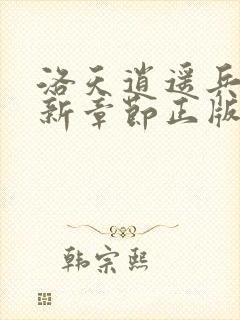 洛天逍遥兵
新章节正版
韩宗熙